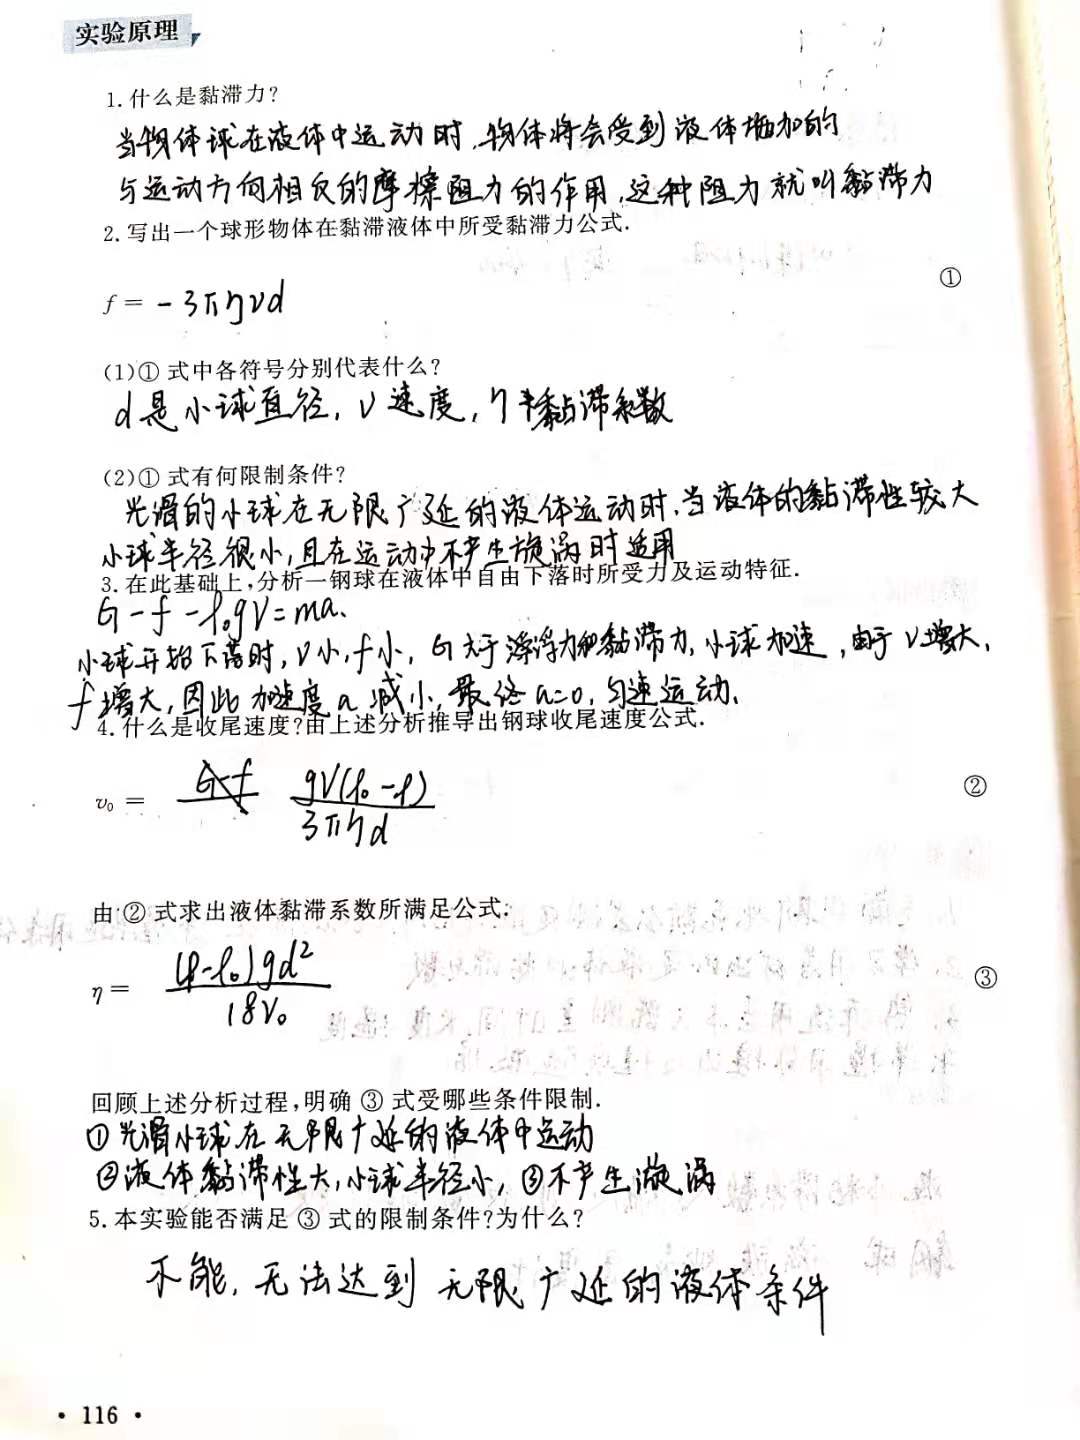 实验原理
1. 什么是黏滞力?
当物体球在液体中运动时,物体将会受到液体施加的
与运动方向相反的摩擦阻力的作用,这种阻力就叫黏滞力
2. 写出一个球形物体在黏滞液体中所受黏滞力公式.
f = - 3πηvd ①
(1)① 式中各符号分别代表什么?
d是小球直径, v速度, η 黏滞系数
(2)① 式有何限制条件?
光滑的小球在无限广延的液体运动时,当液体的黏滞性较大
小球半径很小,且在运动中不产生旋涡时适用
3. 在此基础上,分析一钢球在液体中自由下落时所受力及运动特征.
G-f-ρ₀gV=ma.
小球开始下落时,v小,f小, G大于浮力和黏滞力,小球加速,由于v增大,
f增大,因此加速度a减小,最终a=0,匀速运动.
4. 什么是收尾速度?由上述分析推导出钢球收尾速度公式.
v₀ = G-f gV(ρ₀-ρ) / 3πηd ②
由 ② 式求出液体黏滞系数所满足公式:
η = (ρ-ρ₀)gd² / 18v₀ ③
回顾上述分析过程,明确 ③ 式受哪些条件限制.
①光滑小球在无限广延的液体中运动
②液体黏滞性大,小球半径小,③不产生漩涡
5. 本实验能否满足 ③ 式的限制条件?为什么?
不能,无法达到无限广延的液体条件
· 116 ·